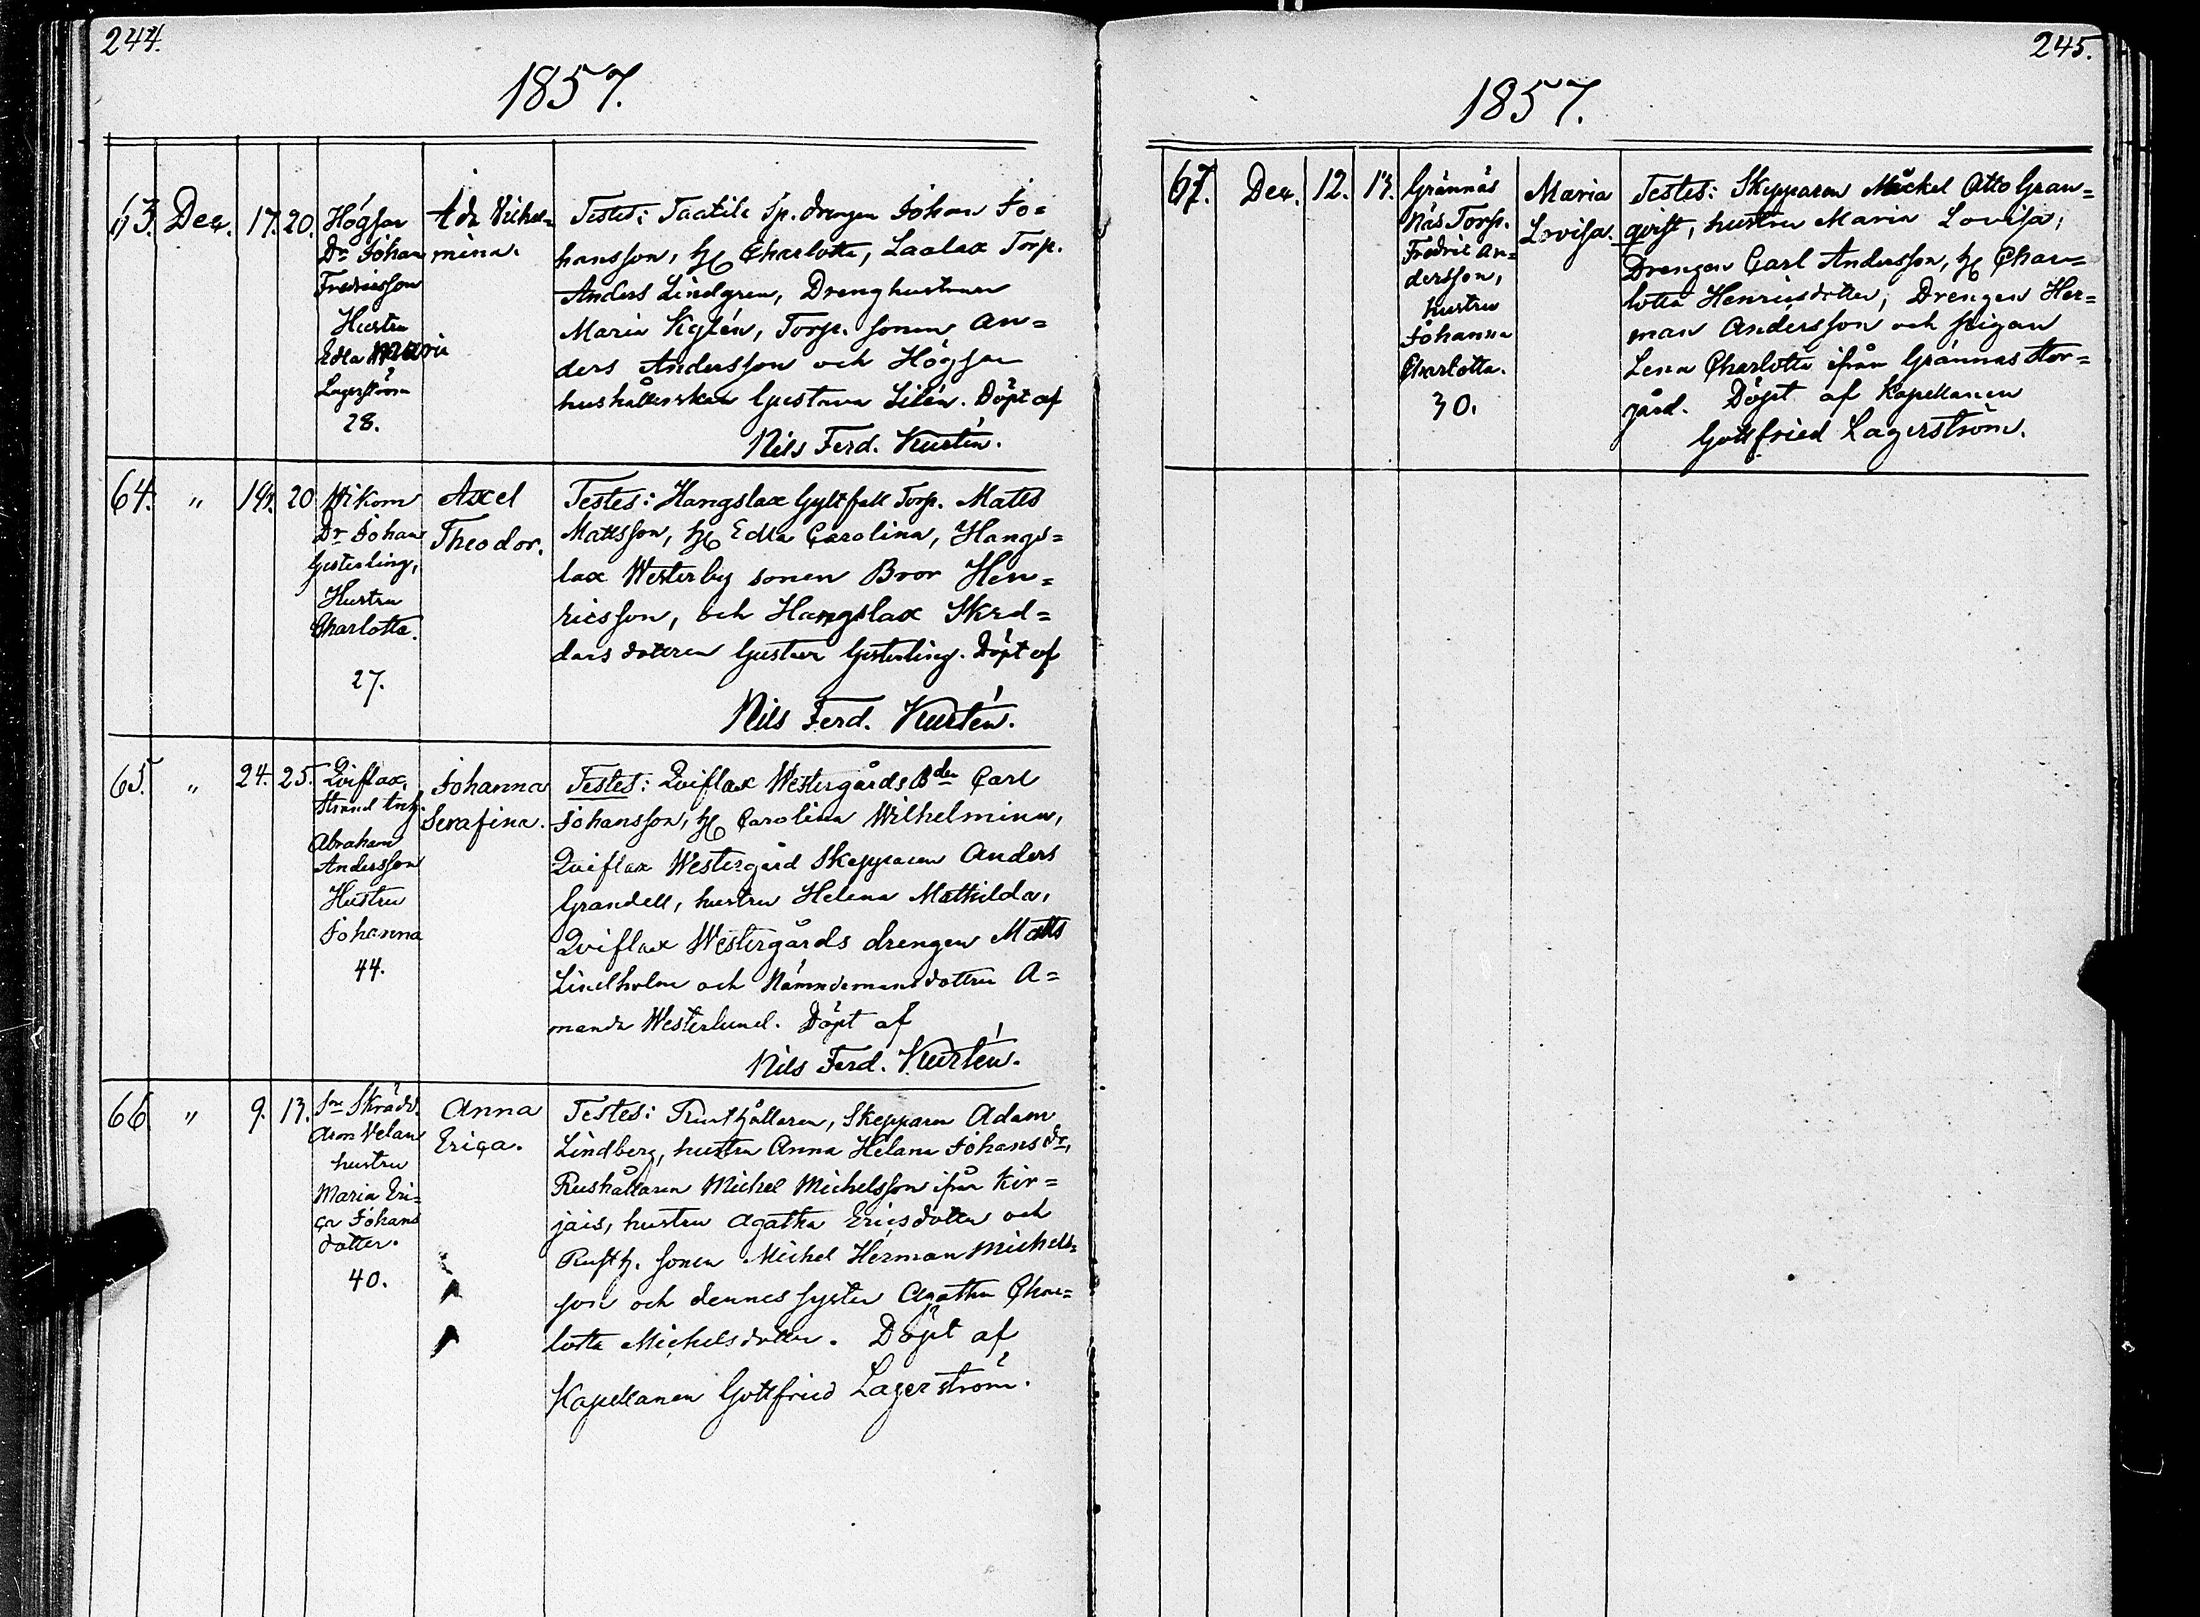 244.
1857.
63. Dec. 17. 20.
Högsar
Dr Johan
Fredricsson
Hustru
Edla Maria
Lagerström
28.
Ada Vilhel=
mina.
Testes: Taatila Sp. drengen Johan Jo=
hansson, H Charlotta, Laalax Torp.
Anders Lindgren, Drenghustrun
Maria Kylén, Torp. sonen An=
ders Andersson och Högsar
hushållerskan Gustava Silén. Döpt af
Nils Ferd. Kurtén.
64. " 19. 20
Wikom
Dr Johan
Gesterling,
Hustru
Charlotta.
27.
Axel
Theodor.
Testes: Hangslax Gyltfall Torp. Matts
Mattsson, H Edla Carolina, Hangs=
lax Westerby sonen Bror Hen=
ricsson, och Hangslax Skred=
dars dottren Gustava Gesterling. Döpt af
Nils Ferd. Kurtén.
65. " 24. 25.
Qviflax,
Strand torp.
Abraham
Andersson
Hustru
Johanna
44.
Johanna
Serafina.
Testes: Qviflax Westergårds Bden Carl
Johansson, H Carolina Wilhelmina,
Qviflax Westergård Skepparen Anders
Grandell, hustru Helena Mathilda,
Qviflax Westergårds drengen Matts
Lindholm och Nämndemans dottren A=
manda Westerlund. Döpt af
Nils Ferd. Kurtén.
66 " 9. 13.
Sn Skrädd.
Aron Velan
hustru
Maria Eri=
ca Johans
dotter.
40.
Anna
Erica.
Testes: Rusthållaren, Skepparen Adam
Lindberg, hustru Anna Helena Johans dr,
Rushållaren Michel Michelsson ifrån Kir=
jais, hustru Agatha Ericsdotter och
Rusth. sonen Michel Herman Michels=
son och dennes syster Agatha Char=
lotta Michelsdotter. Döpt af
Kapellanen Gottfried Lagerström.
245.
1857.
67. Dec. 12. 13.
Grännäs
Näs Torp.
Fredric An=
dersson,
hustru
Johanna
Charlotta.
30.
Maria
Lovisa.
Testes: Skepparen Mickel Otto Gran=
qvist, hustru Maria Lovisa,
Drengen Carl Andersson, H Char=
lotta Henricsdotter, Drengen Her=
man Andersson och pigan
Lena Charlotta ifrån Grännas Stor=
gård. Döpt af Kapellanen
Gottfried Lagerström.